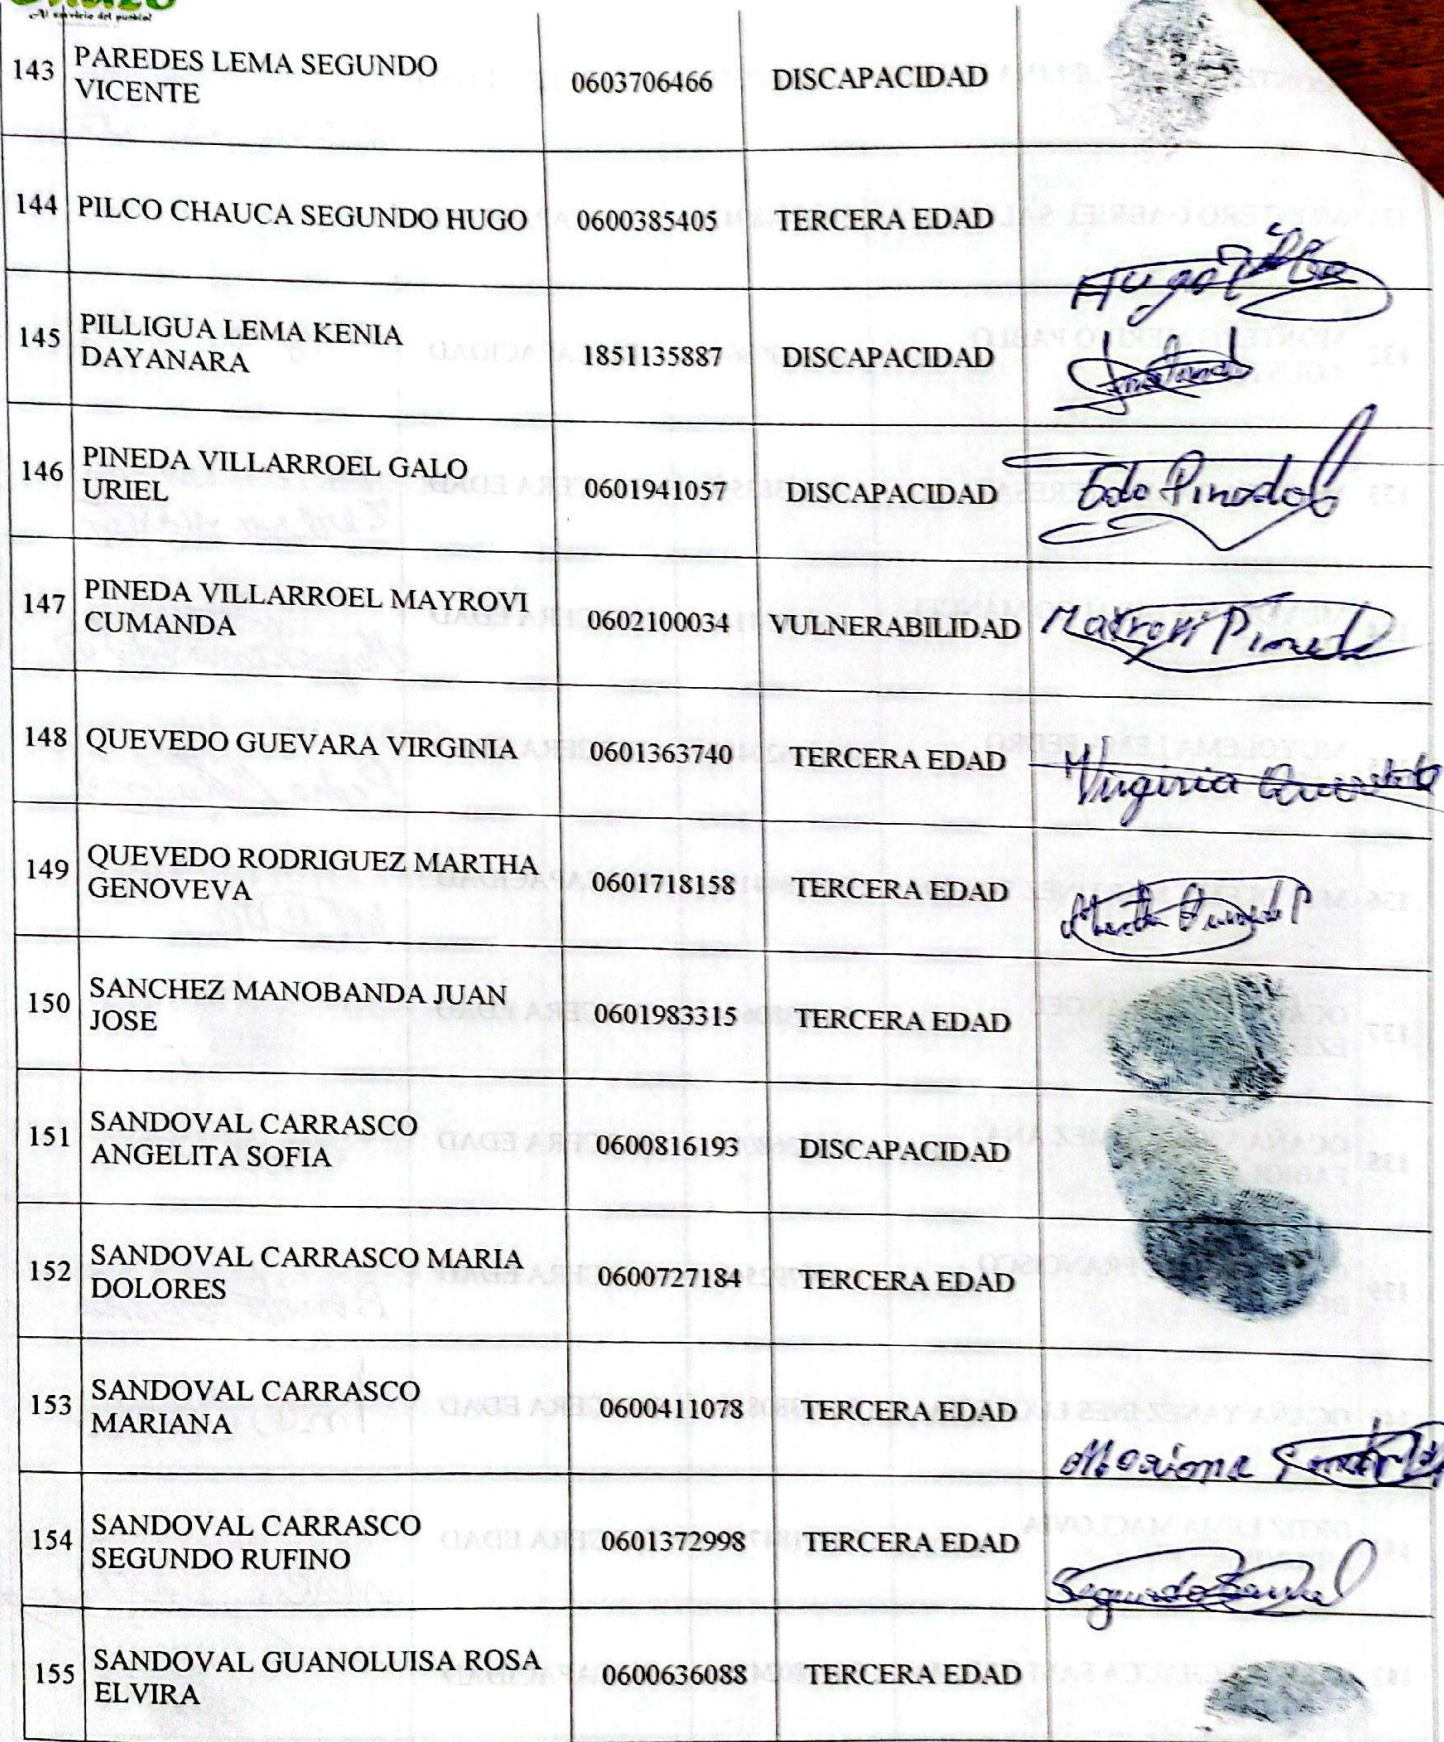 Al servicio del pueblo!
143 PAREDES LEMA SEGUNDO VICENTE 0603706466 DISCAPACIDAD
144 PILCO CHAUCA SEGUNDO HUGO 0600385405 TERCERA EDAD
145 PILLIGUA LEMA KENIA DAYANARA 1851135887 DISCAPACIDAD
146 PINEDA VILLARROEL GALO URIEL 0601941057 DISCAPACIDAD
147 PINEDA VILLARROEL MAYROVI CUMANDA 0602100034 VULNERABILIDAD Mayrovi Pineda
148 QUEVEDO GUEVARA VIRGINIA 0601363740 TERCERA EDAD Virginia
149 QUEVEDO RODRIGUEZ MARTHA GENOVEVA 0601718158 TERCERA EDAD
150 SANCHEZ MANOBANDA JUAN JOSE 0601983315 TERCERA EDAD
151 SANDOVAL CARRASCO ANGELITA SOFIA 0600816193 DISCAPACIDAD
152 SANDOVAL CARRASCO MARIA DOLORES 0600727184 TERCERA EDAD
153 SANDOVAL CARRASCO MARIANA 0600411078 TERCERA EDAD
154 SANDOVAL CARRASCO SEGUNDO RUFINO 0601372998 TERCERA EDAD
155 SANDOVAL GUANOLUISA ROSA ELVIRA 0600636088 TERCERA EDAD